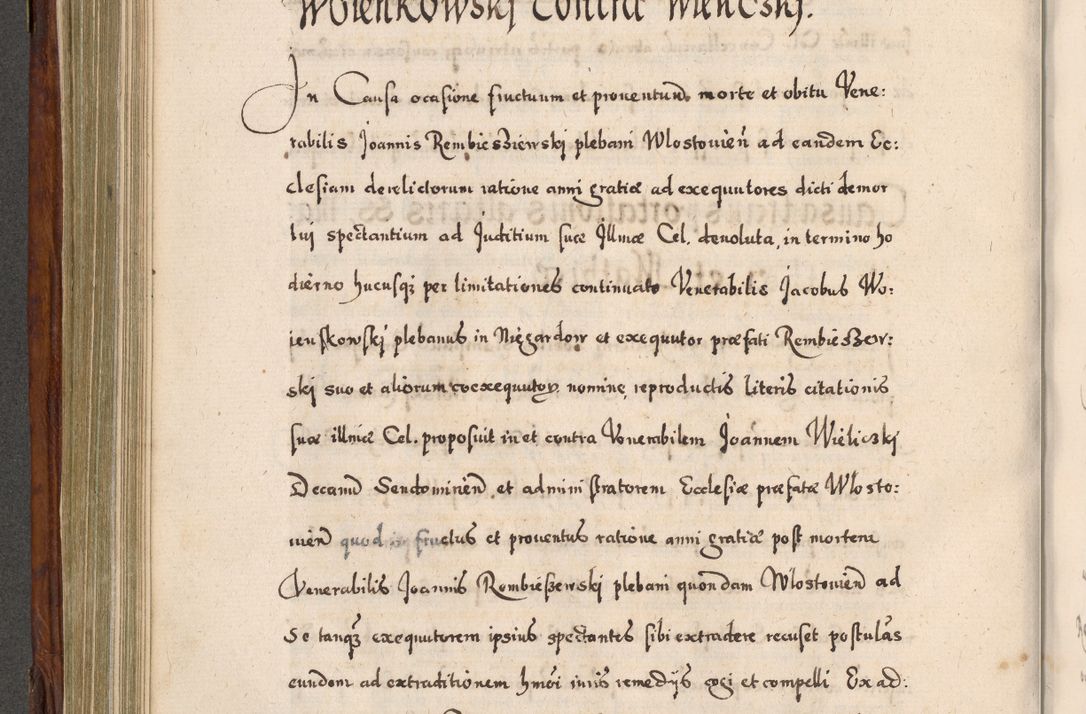 Woienkowskj contra Wielicskj.
In Causa ocasione fructuum et prouentund morte et obitu Vene:
rabilis Joannis Rembiesziewskj plebani Wlostouien̄ ad eandem Ec:
clesiam derelictorum ratione anni gratiæ ad exequutores dicti demor
tuj spectantium ad Juditium suæ Illmæ Cel. deuoluta, in termino ho
dierno hucusq; per limitationes continuato Venerabilis Jacobus Wo:
ienskowskj plebanus in Niegardow et exequutor præfati Rembieszew:
ski suo et aliorum coexequutor nomine, reproductis literis citationis
suæ illmæ Cel. proposuit in et contra Venerabilem Joannem Wieliczkj
Decanū Sendomirien̄ et administratorem Ecclesiæ præfatæ Wlosto:
uien̄ quod fructus et prouentus ratione anni gratiæ post mortem
Venerabilis Joannis Rembieszewski plebani quondam Wlostouien̄ ad
Se tanq; exequutorem ipsius spectantes sibi extradere recuset postulās
eundem ad extraditionem hmōi iuris remedijs cogi et compelli Ex ad: